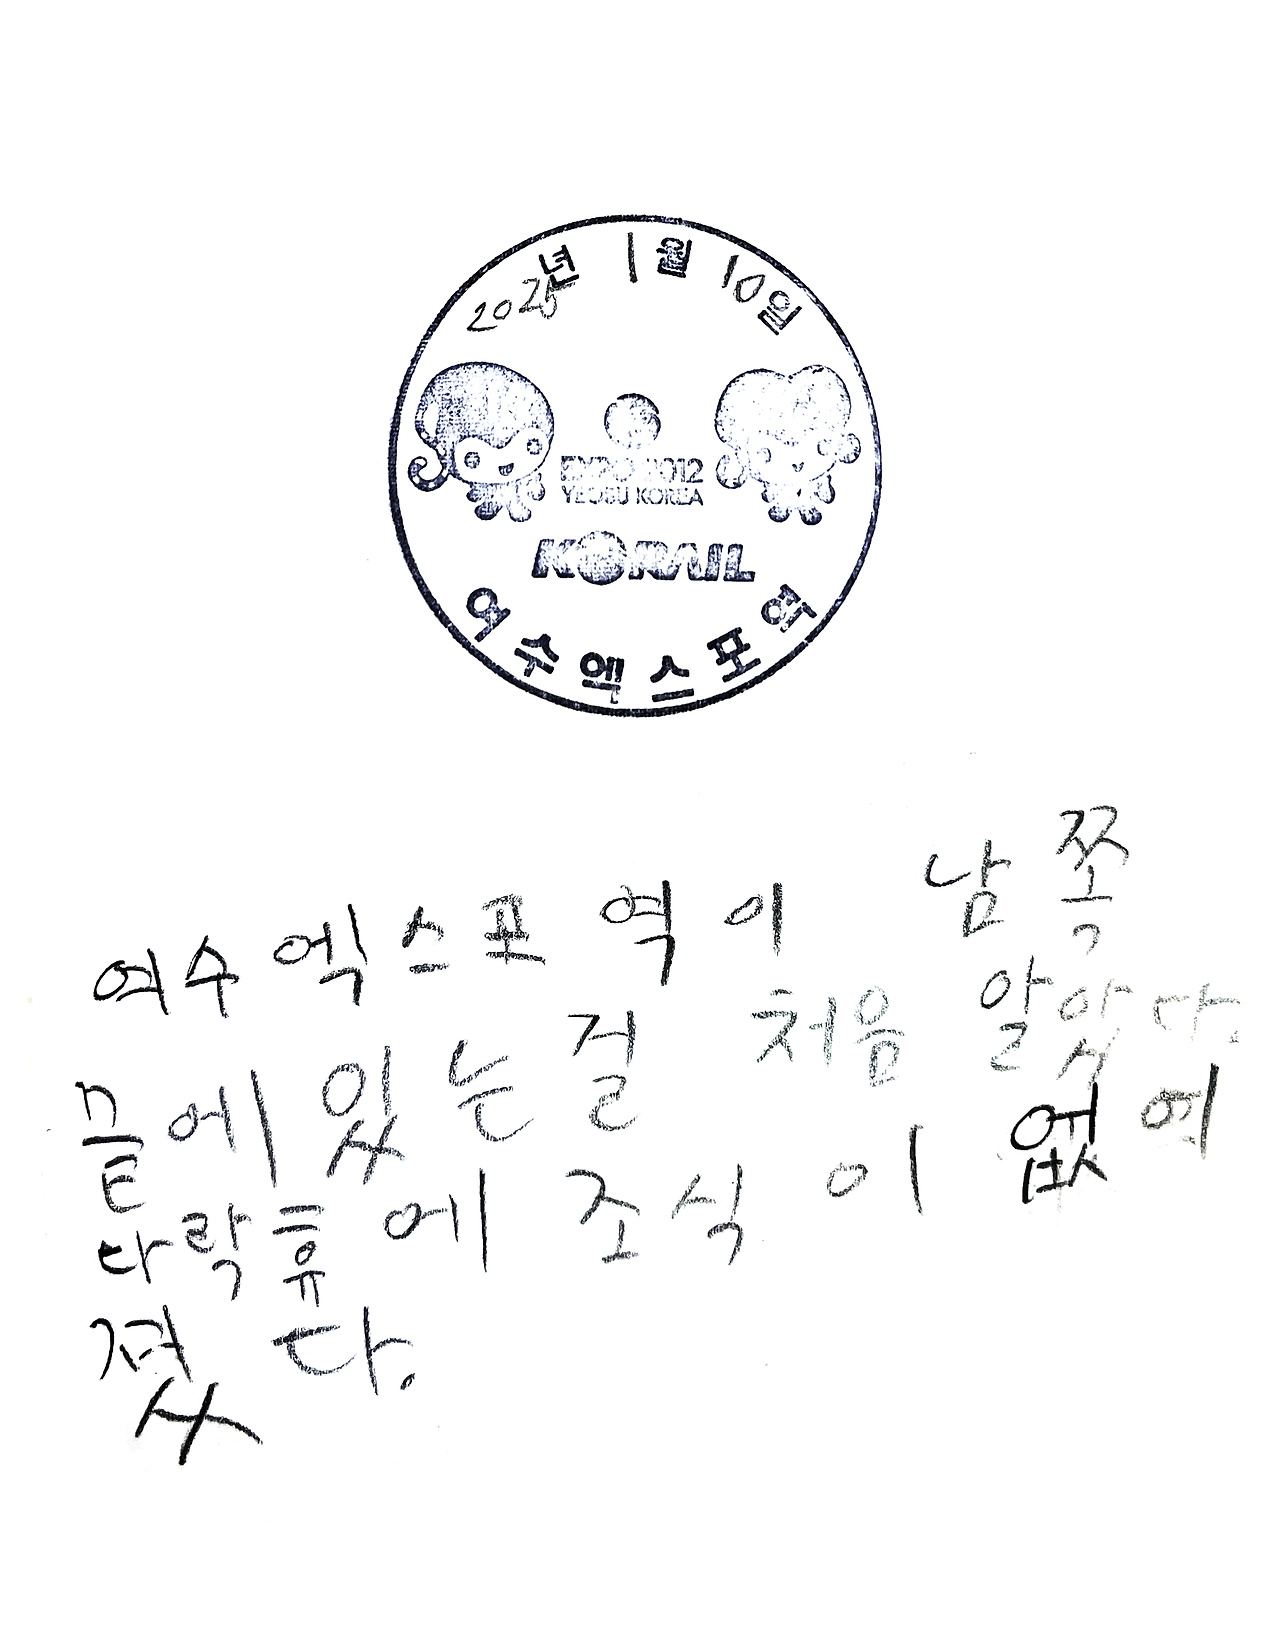 2025년 1월 10일
EXPO 2012
YEOSU KOREA
KORAIL
여수엑스포역
여수엑스포역이 남쪽
끝에 있는 걸 처음 알았다.
다락휴에 조식이 없어
졌다.